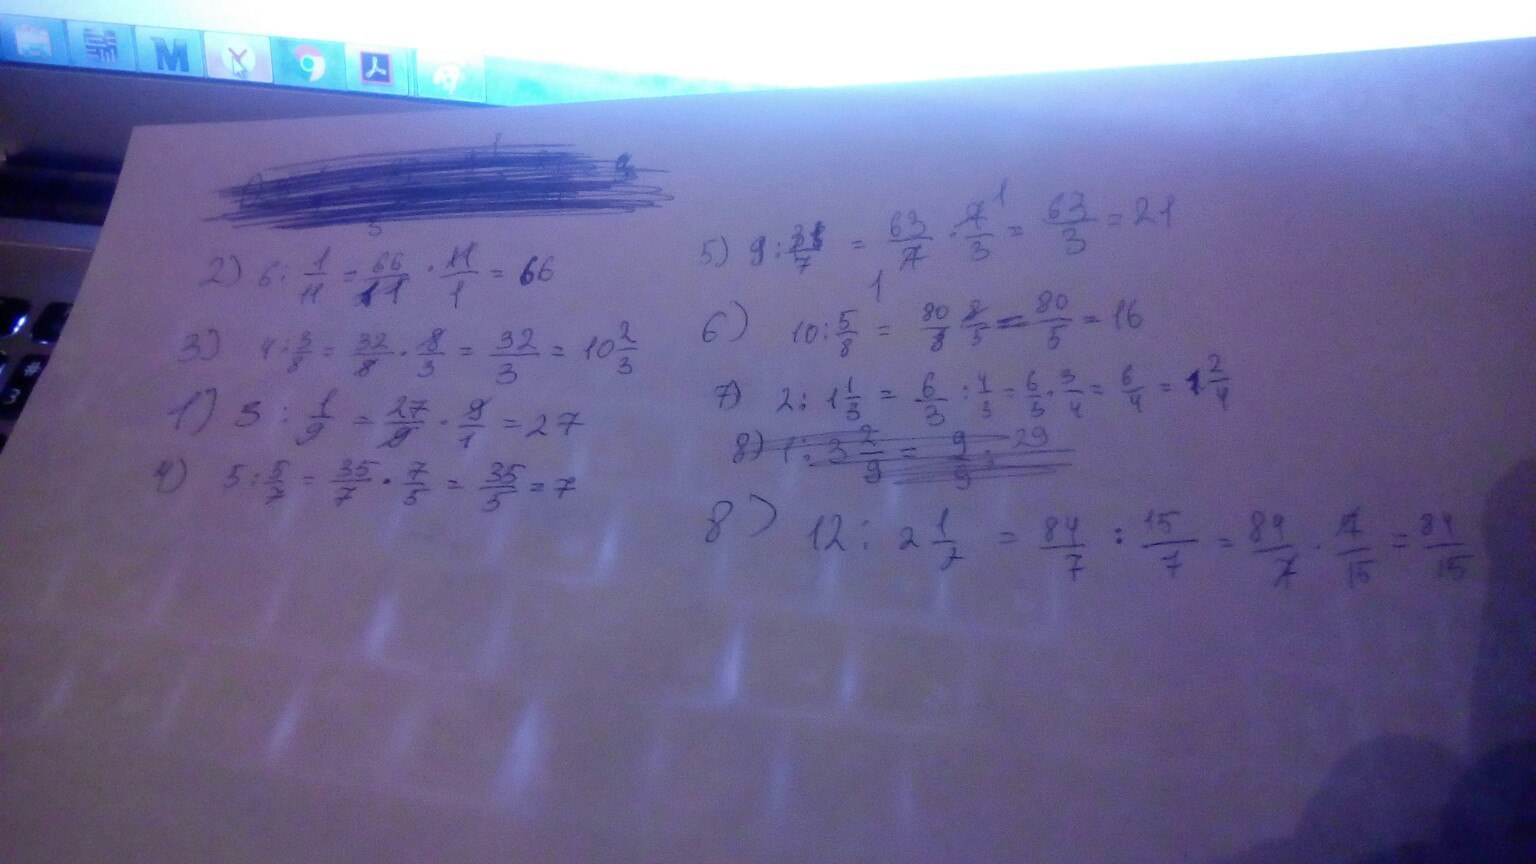 M
2) 6 : 1/11 = 66/11 · 11/1 = 66
3) 4 : 3/8 = 32/8 · 8/3 = 32/3 = 10 2/3
1) 3 : 1/9 = 27/9 · 9/1 = 27
4) 5 : 5/7 = 35/7 · 7/5 = 35/5 = 7
5) 9 : 3/7 = 63/7 · 7/3 = 63/3 = 21
6) 10 : 5/8 = 80/8 8/5 = 80/5 = 16
7) 2 : 1 1/3 = 6/3 : 4/3 = 6/3 · 3/4 = 6/4 = 1 2/4
8) 1 : 3 2/9 = 9/9 : 29
8) 12 : 2 1/7 = 84/7 : 15/7 = 84/7 · 7/15 = 84/15